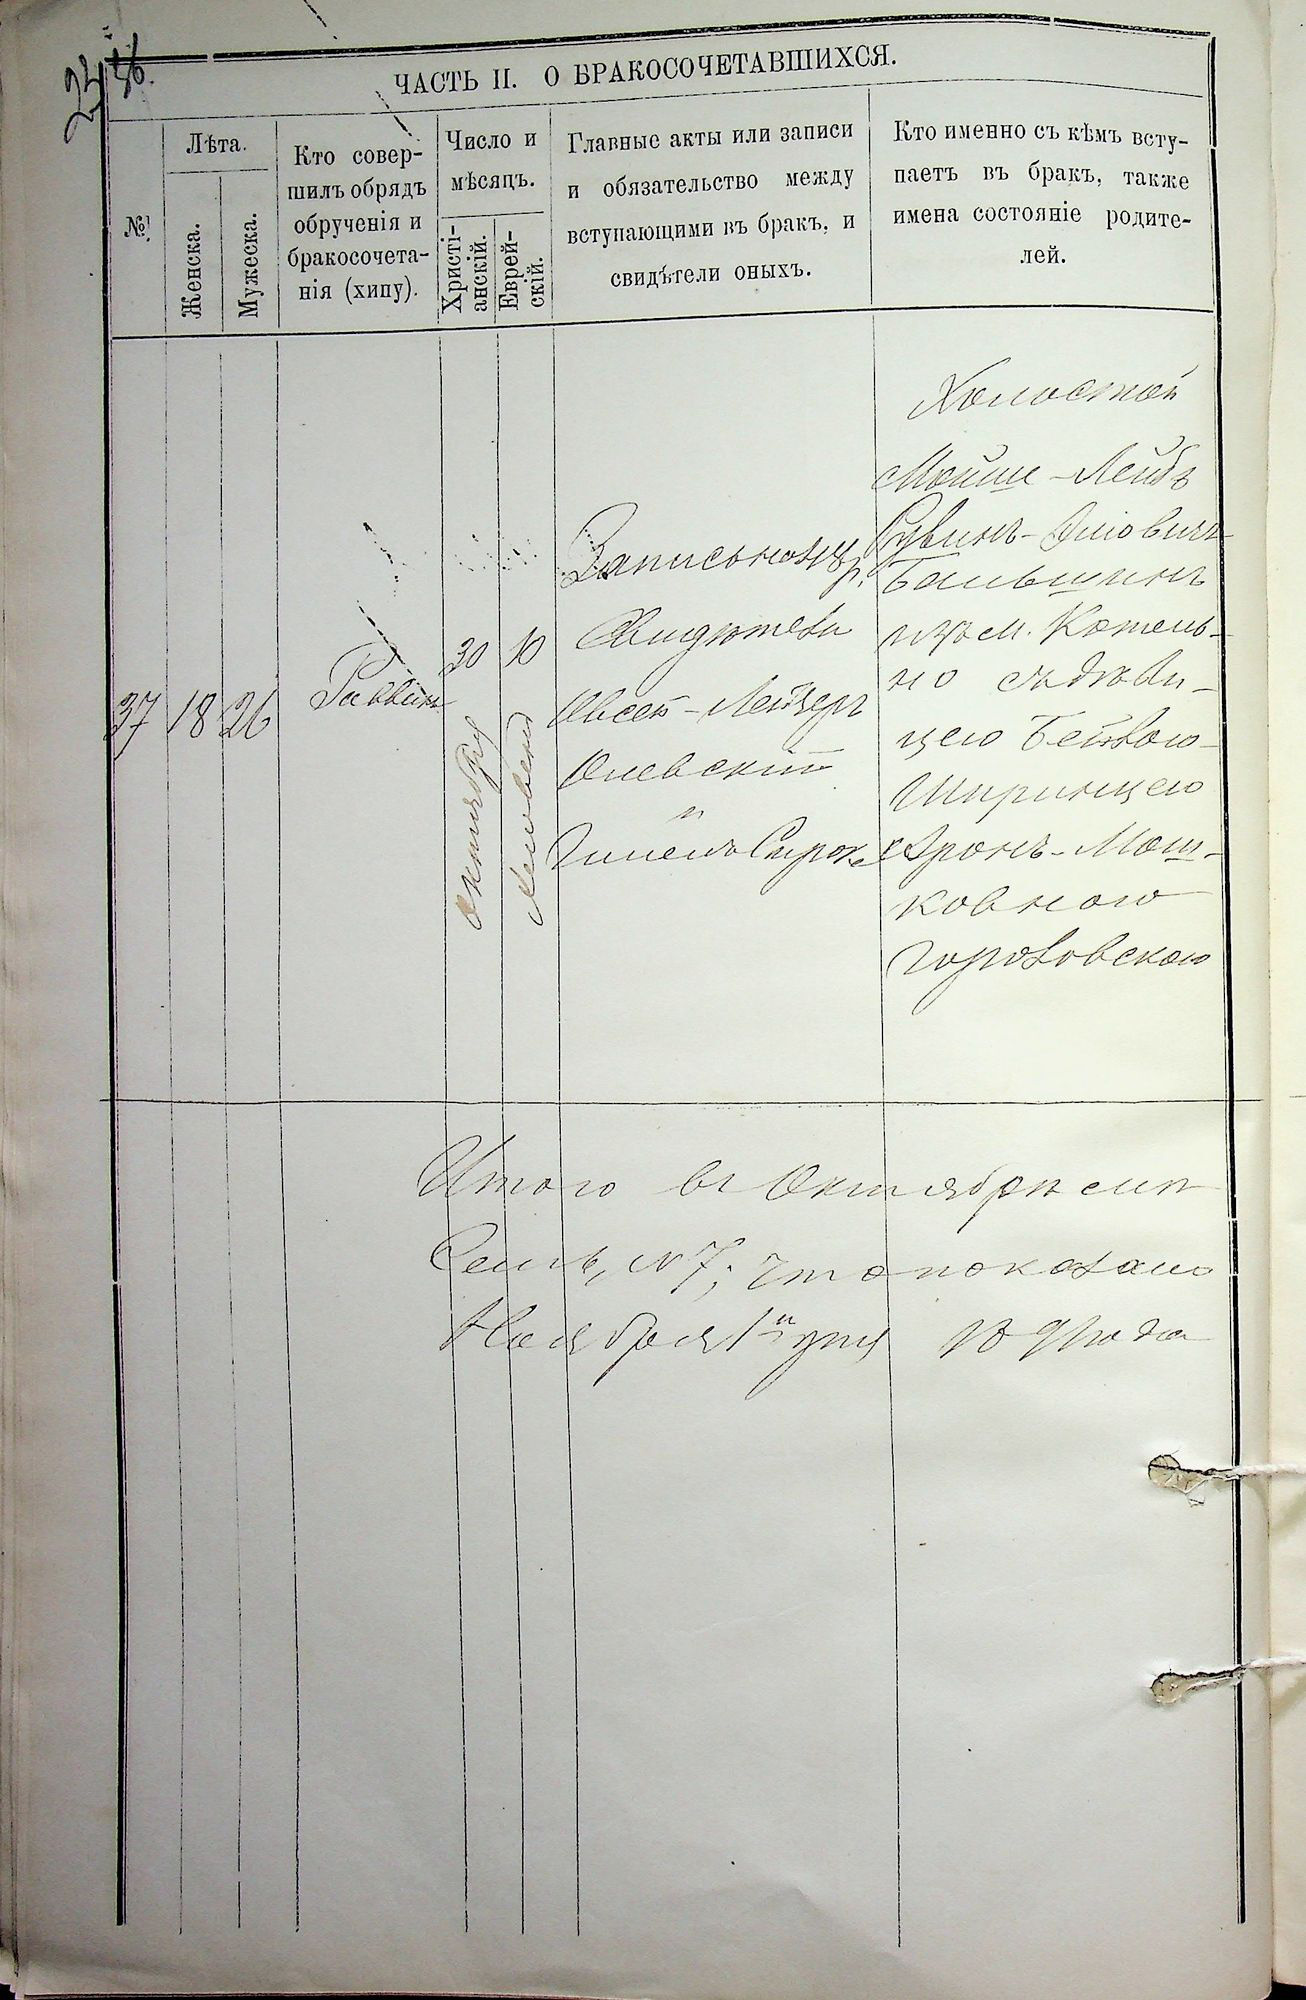 ЧАСТЬ II. О БРАКОСОЧЕТАВШИХСЯ.
№
Лѣта.
Женска.
Мужеска.
Кто совер-
шилъ обрядъ
обрученія и
бракосочета-
нія (хипу).
Число и
мѣсяцъ.
Христі-
анскій.
Еврей-
скій.
Главные акты или записи
и обязательство между
вступающими въ бракъ, и
свидѣтели оныхъ.
Кто именно съ кѣмъ всту-
паетъ въ бракъ, также
имена состояніе родите-
лей.
37
18
26
Раввинъ
30
Октября
10
Свидѣтели
Овсей-Лейзеръ
Олевскій
и
Холостой
Мойше-Лейбъ
Рувинъ-
изъ м. Котель-
но съ дѣви-
цею Бейлою-
Ширинцею
Аронъ-Мош-
ковною
Гороховскою
Итого въ Октябрѣ м-цѣ
Семь, № 7, что показано
Ноября 1 дня года